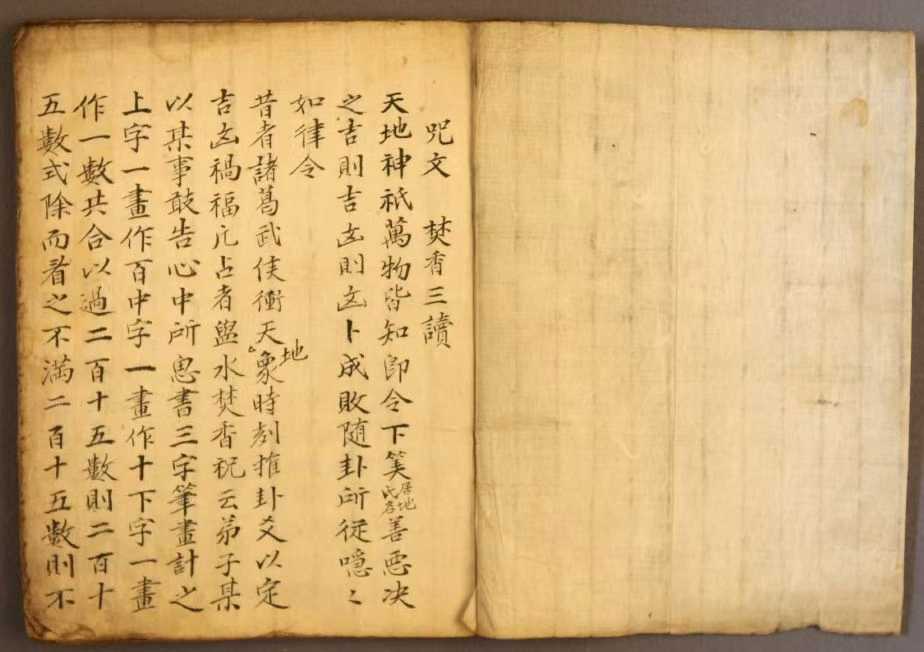 咒文 焚香三讀
天地神祇萬物皆知即令下筭居地氏名善惡决
之吉則吉㐫則㐫卜成敗随卦所従噫〻
如律令
昔者諸葛武侯衝天地象時刻推卦爻以定
吉㐫禍福凢占者盥水焚香祝云弟子某
以某事敢告心中所思書三字筆畫計之
上字一畫作百中字一畫作十下字一畫
作一數共合以過二百十五數則二百十
五數式除而看之不滿二百十五數則不